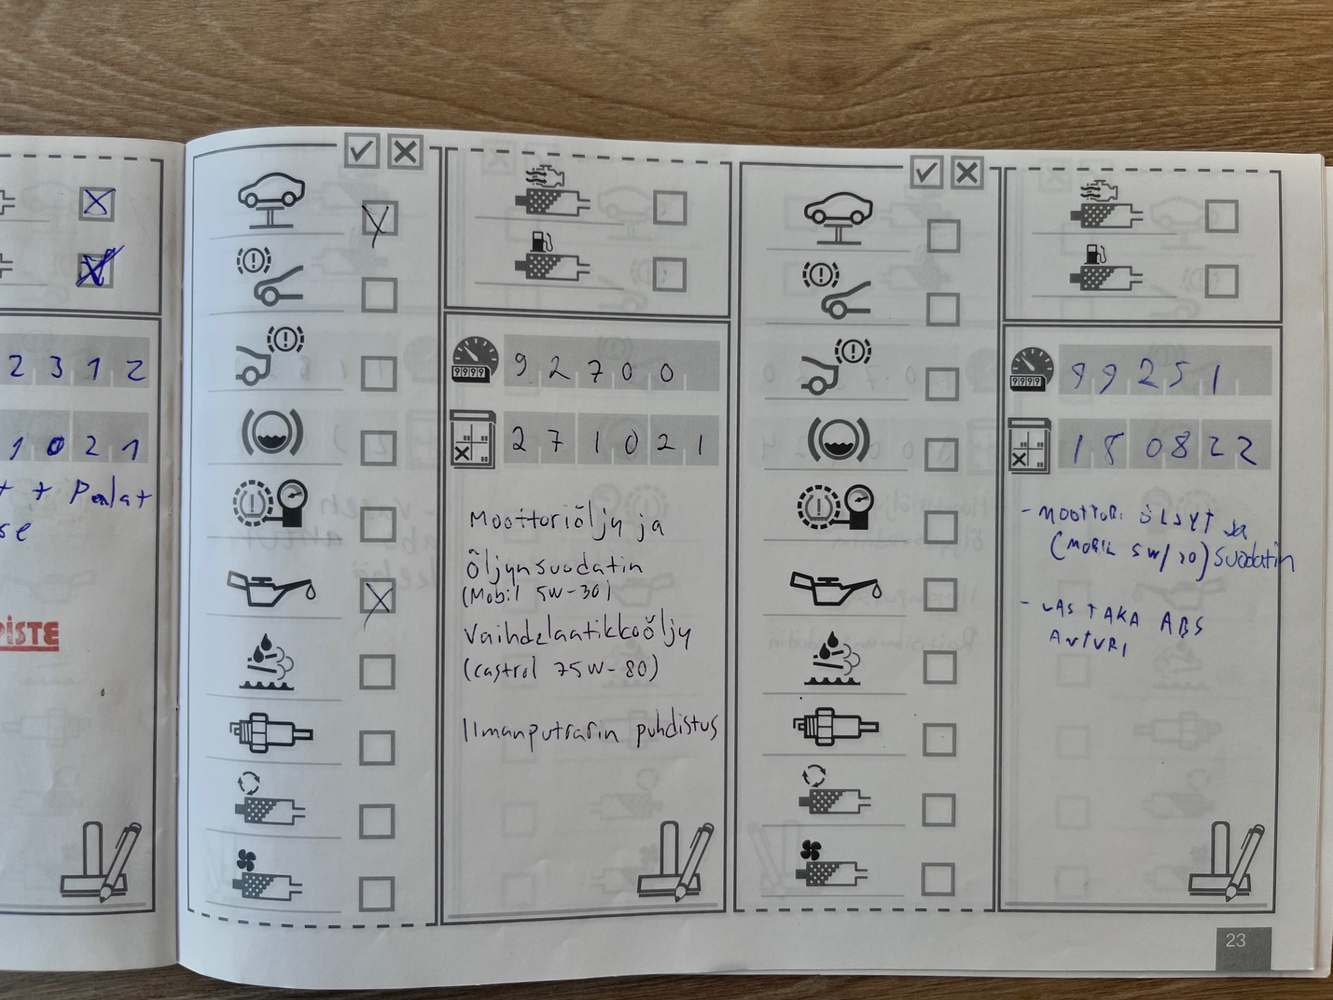 2 3 1 2
1 0 2 1
+ + Pealat
se
PİSTE
9999
9 2 7 0 0
2 7 1 0 2 1
Moottoriõljy ja
õljynsuodatin
(Mobil 5W-30)
Vaihdelaatikkoõljy
(castrol 75W-80)
Ilmanputrarin puhdistus
9999
9 9 2 5 1
1 5 0 8 2 2
- MOOTTORI ÖLJYT ja
(MOBIL 5W/30) suodatin
- VAS TAKA ABS
ANTURI
23